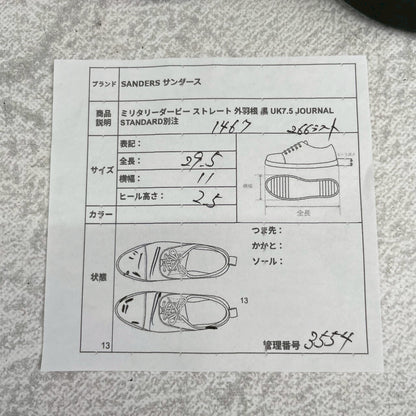 ブランド SANDERS サンダース
商品説明 ミリタリーダービー ストレート 外羽根 黒 UK7.5 JOURNAL
STANDARD別注 1467 266ラスト
サイズ
表記：
全長： 29.5
横幅： 11
ヒール高さ： 2.5
横幅
全長
カラー
状態
つま先：
かかと：
ソール：
13
13
管理番号 3554